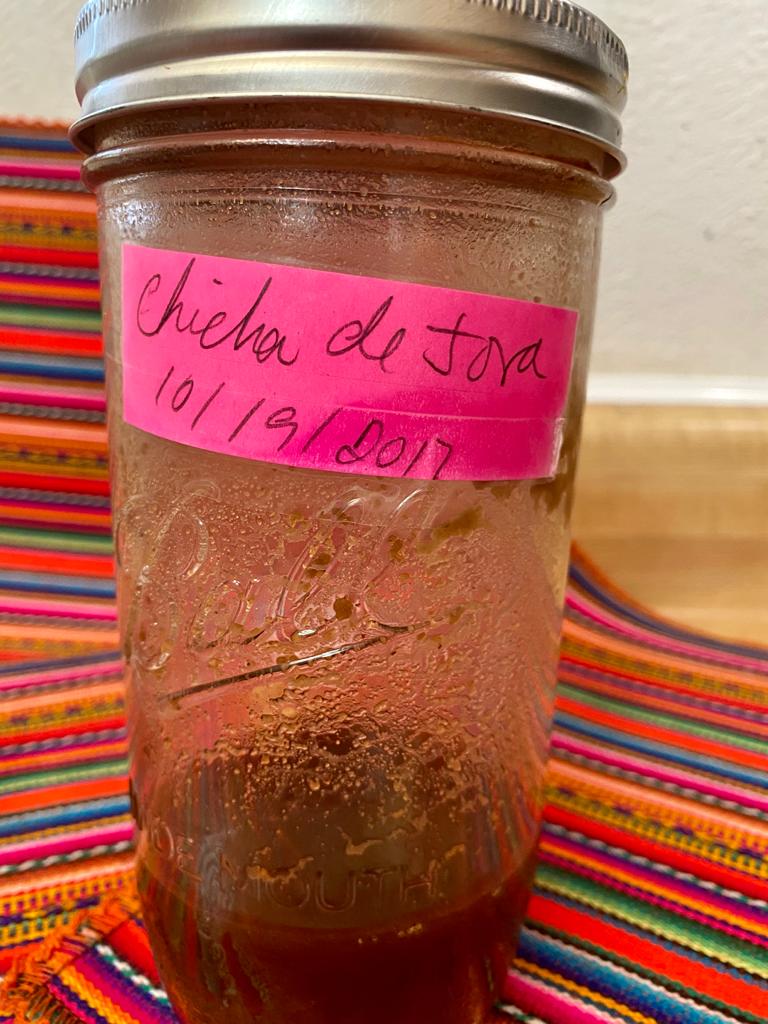 Chicha de Jora
10/19/2017
Ball
WIDE MOUTH